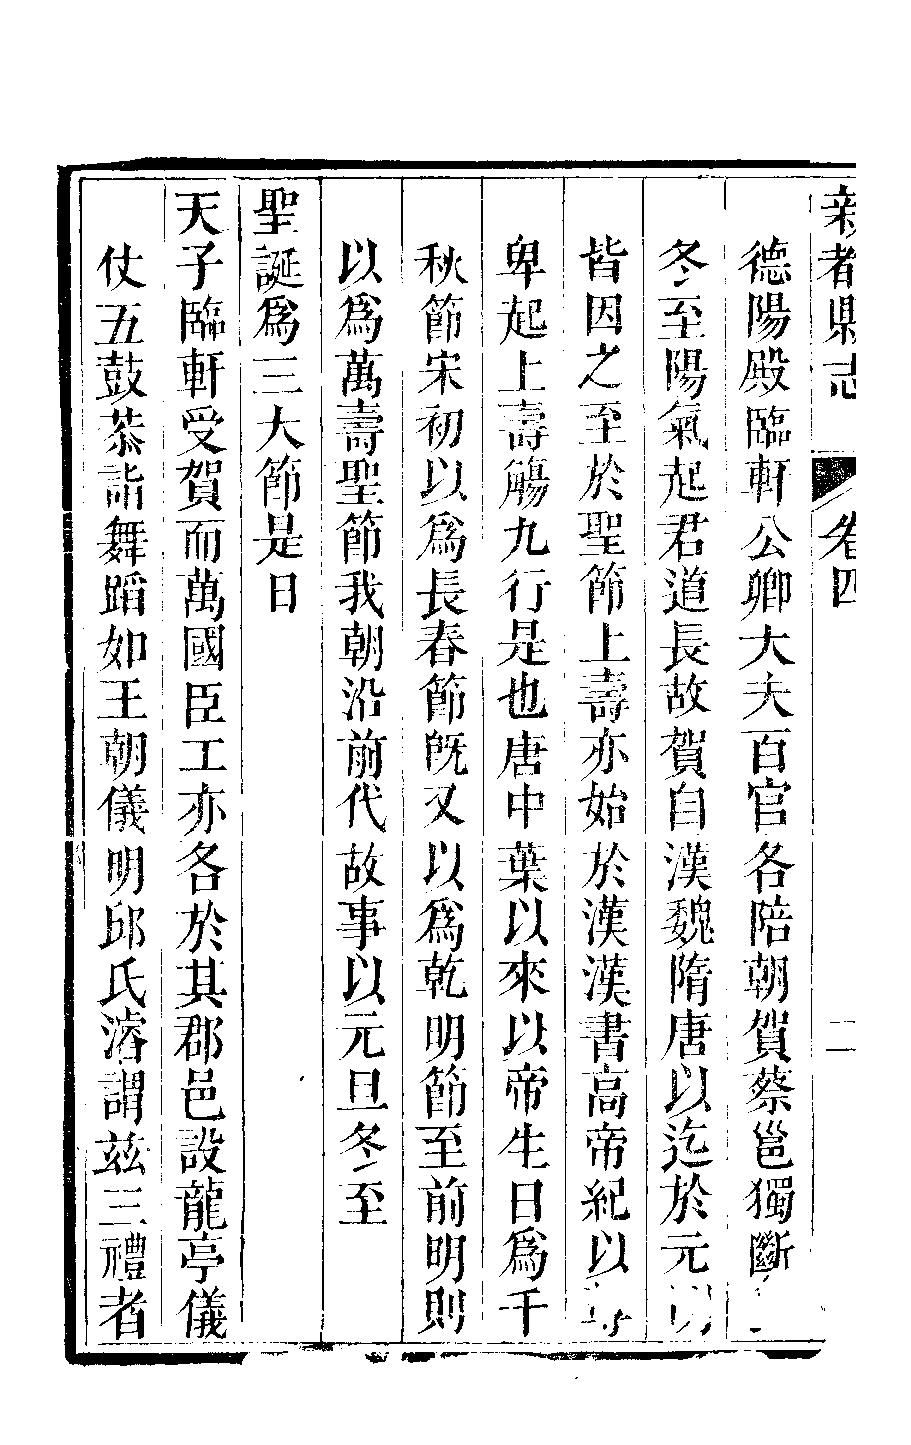 新都縣志 卷四 二
德陽殿臨軒公卿大夫百官各陪朝賀蔡邕獨斷
冬至陽氣起君道長故賀自漢魏隋唐以迄於元明
皆因之至於聖節上壽亦始於漢漢書高帝紀以尊
卑起上壽觴九行是也唐中葉以來以帝生日爲千
秋節宋初以爲長春節旣又以爲乾明節至前明則
以爲萬壽聖節我朝沿前代故事以元旦冬至
聖誕爲三大節是日
天子臨軒受賀而萬國臣工亦各於其郡邑設龍亭儀
仗五鼓恭詣舞蹈如王朝儀明邱氏濬謂玆三禮者